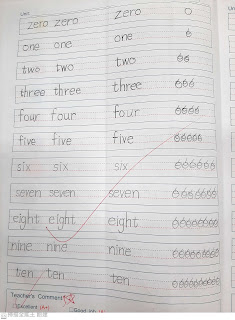 zero zero zero 0
one one one 6
two two two 66
three three three 666
four four four 6666
five five five 66666
six six six 666666
seven seven seven 6666666
eight eight eight 66666666
nine nine nine
ten ten ten
Teacher's Comment
Excellent (A+)